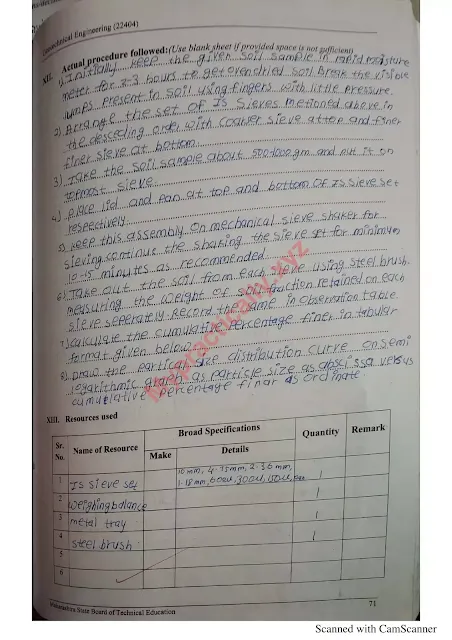 Geotechnical Engineering (22404)
XII. Actual procedure followed:(Use blank sheet if provided space is not sufficient)
1) Initially keep the given soil sample in rapid moisture
meter for 2-3 hours to get oven dried soil. break the visible
lumps present in soil using fingers with little pressure.
2) Arrange the set of IS sieves metioned above in
the desceding order with coarser sieve at top and finer
finer sieve at bottom.
3) Take the soil sample about 500-1000gm and put it on
topmost sieve
4) place lid and pan at top and bottom OF IS sieve set
respectively
5) keep this assembly on mechanical sieve shaker for
sieving. continue the shaking the sieve set for minimum
10-15 minutes as recommended
6) Take out the soil from each sieve using steel brush.
measuring the weight of soil fraction retained on each
sieve seperately. Record the same in observation table
7) calculate the cumulative percentage finer in tabular
format given below
8) Draw the partical size distribution curve on semi
logarithmic graph as particle size as abscissa versus
cumulative percentage finar as ordinate
XIII. Resources used
Sr. No. Name of Resource Broad Specifications Quantity Remark
Make Details
1 Is sieve set 10 mm, 4.75mm, 2.36 mm, 1
1.18 mm, 600u, 300u, 150u, pan
2 weighing balance 1
3 metal tray 1
4 steel brush 1
5
6
Maharashtra State Board of Technical Education 71
Scanned with CamScanner